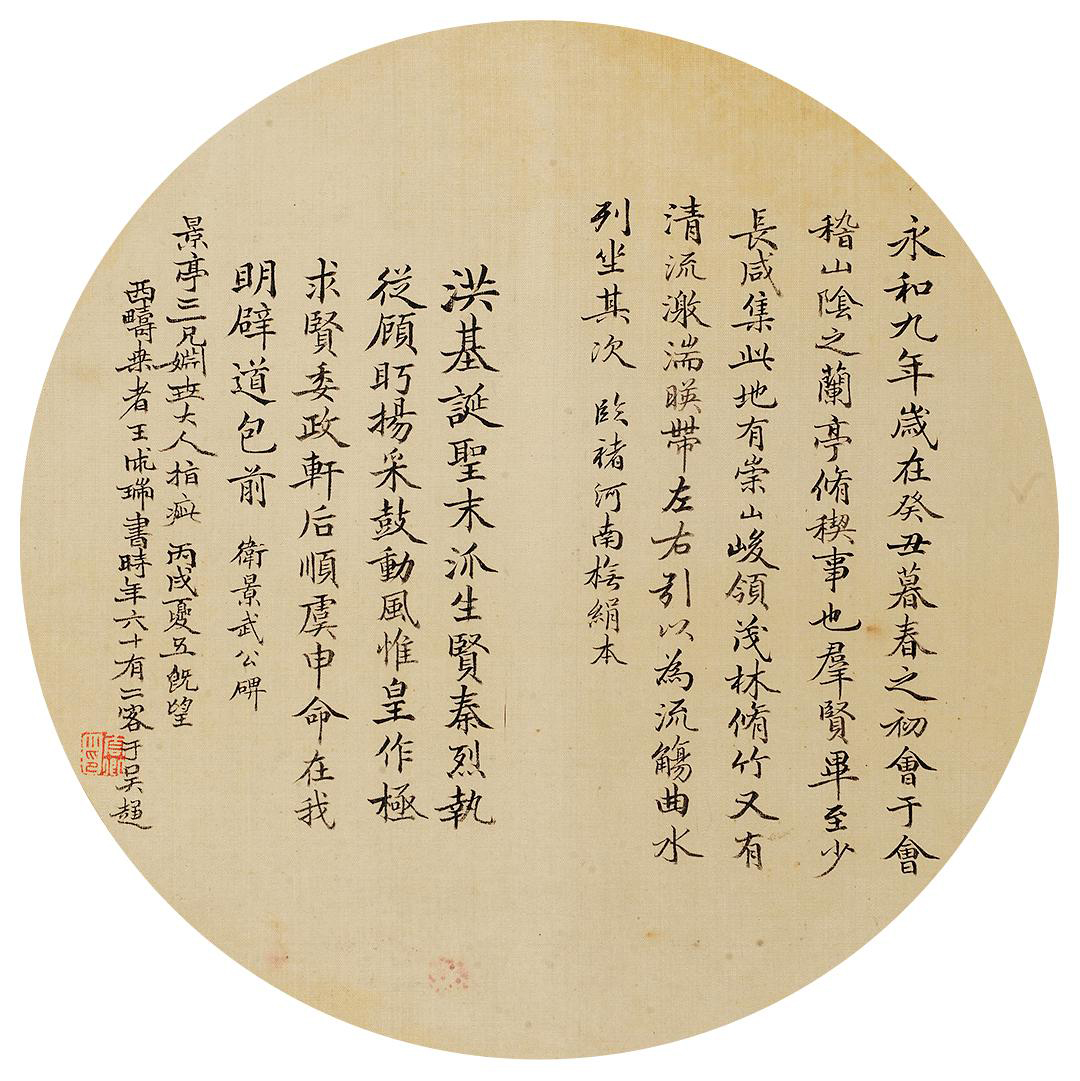 永和九年歲在癸丑暮春之初會于會
稽山陰之蘭亭脩稧事也羣賢畢至少
長咸集此地有崇山峻領茂林脩竹又有
清流激湍暎帶左右引以為流觴曲水
列坐其次 臨褚河南橅絹本
洪基誕聖末泒生賢秦烈執
從顧眄揚采鼓動風惟皇作極
求賢委政軒后順虞申命在我
明辟道包前 衛景武公碑
景亭三兄姻世大人指疵 丙戌夏五既望
西疇耒者王 瑞書時年六十有二客于吳趨